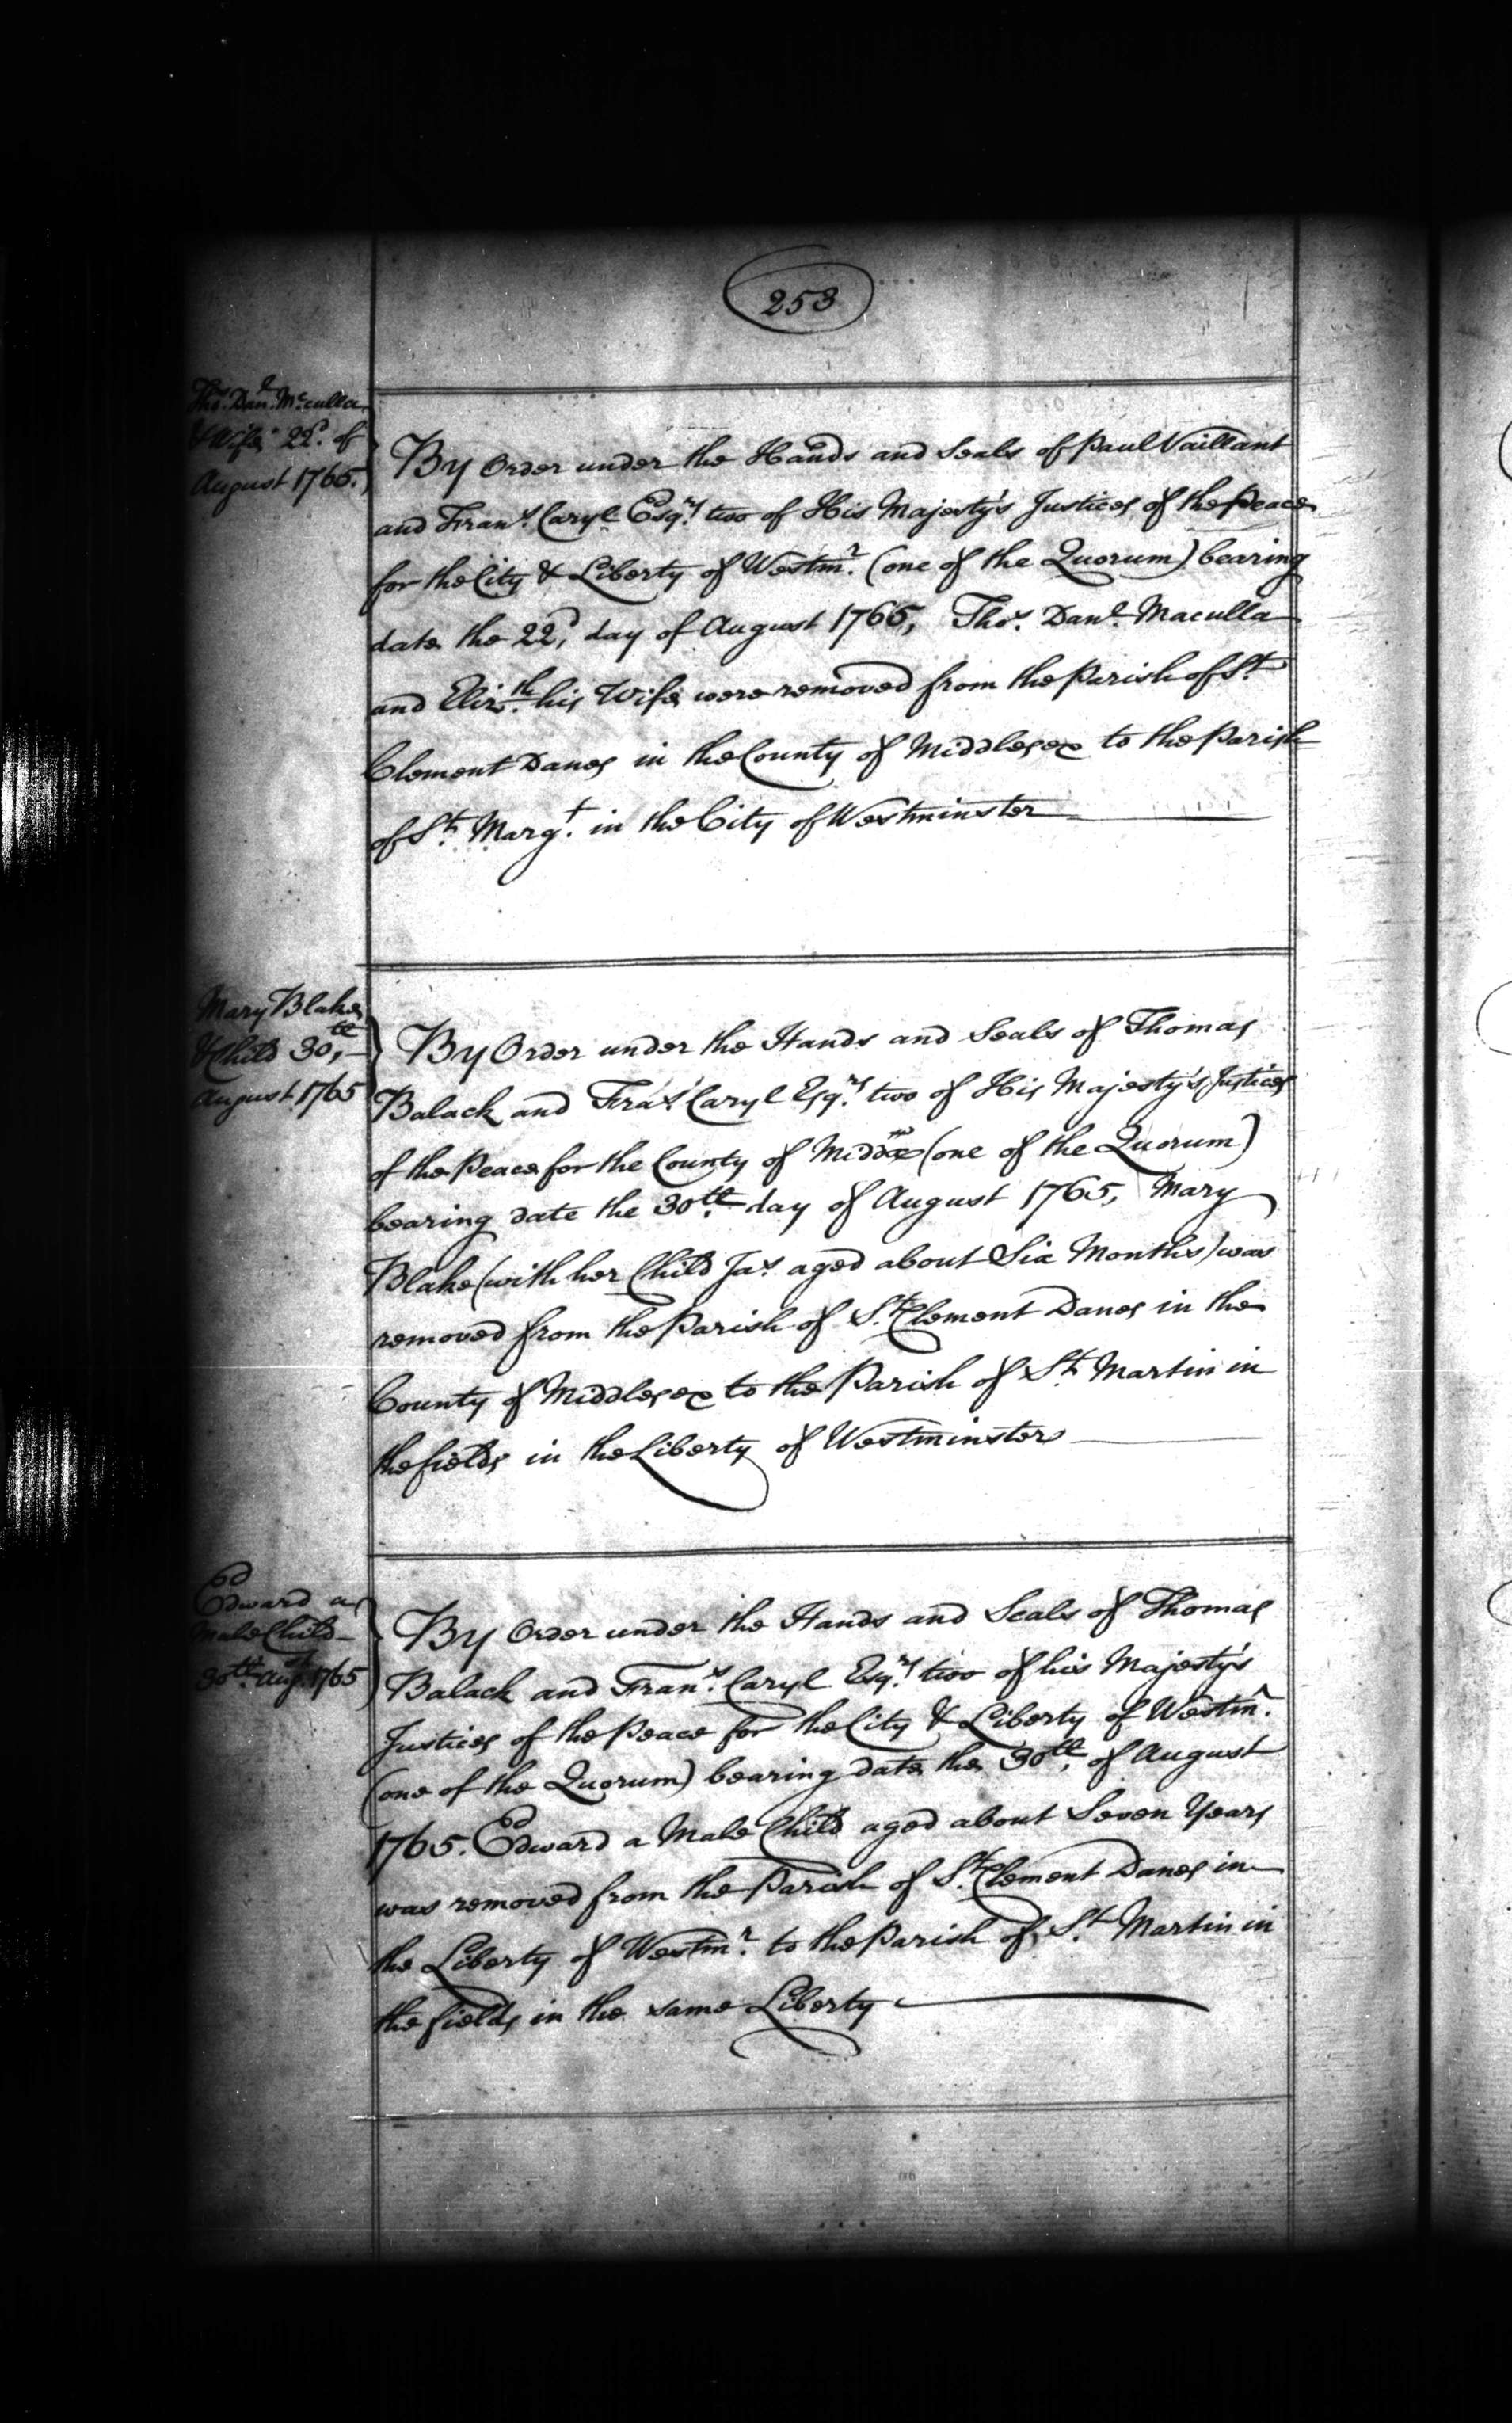 253
Thos. Danl. Mcculla
& Wife 22d. of
August 1765.
By Order under the Hands and Seals of Paul Vaillant
and Frans. Caryl Esqrs. two of His Majesty's Justices of the Peace
for the City & Liberty of Westmr. (one of the Quorum) bearing
date the 22d, day of August 1765, Thos. Danl. Maculla
and Elizth. his Wife were removed from the Parish of St.
Clement Danes in the County of Middlesex to the Parish
of St. Margt. in the City of Westminster
Mary Blake
& Child 30th,
August 1765
By Order under the Hands and Seals of Thomas
Balack and Fras. Caryl Esqrs. two of His Majesty's Justices
of the Peace for the County of Middx (one of the Quorum)
bearing date the 30th. day of August 1765, Mary
Blake (with her Child Jas. aged about Six Months) was
removed from the Parish of St. Clement Danes in the
County of Middlesex to the Parish of St. Martin in
the fields in the Liberty of Westminster
Edward a
Male Child
30th. Augt. 1765
By Order under the Hands and Seals of Thomas
Balack and Frans. Caryl Esqrs. two of his Majesty's
Justices of the Peace for the City & Liberty of Westmr.
(one of the Quorum) bearing date the 30th, of August
1765. Edward a Male Child aged about Seven Years
was removed from the Parish of St. Clement Danes in
the Liberty of Westmr. to the Parish of St. Martin in
the fields in the same Liberty